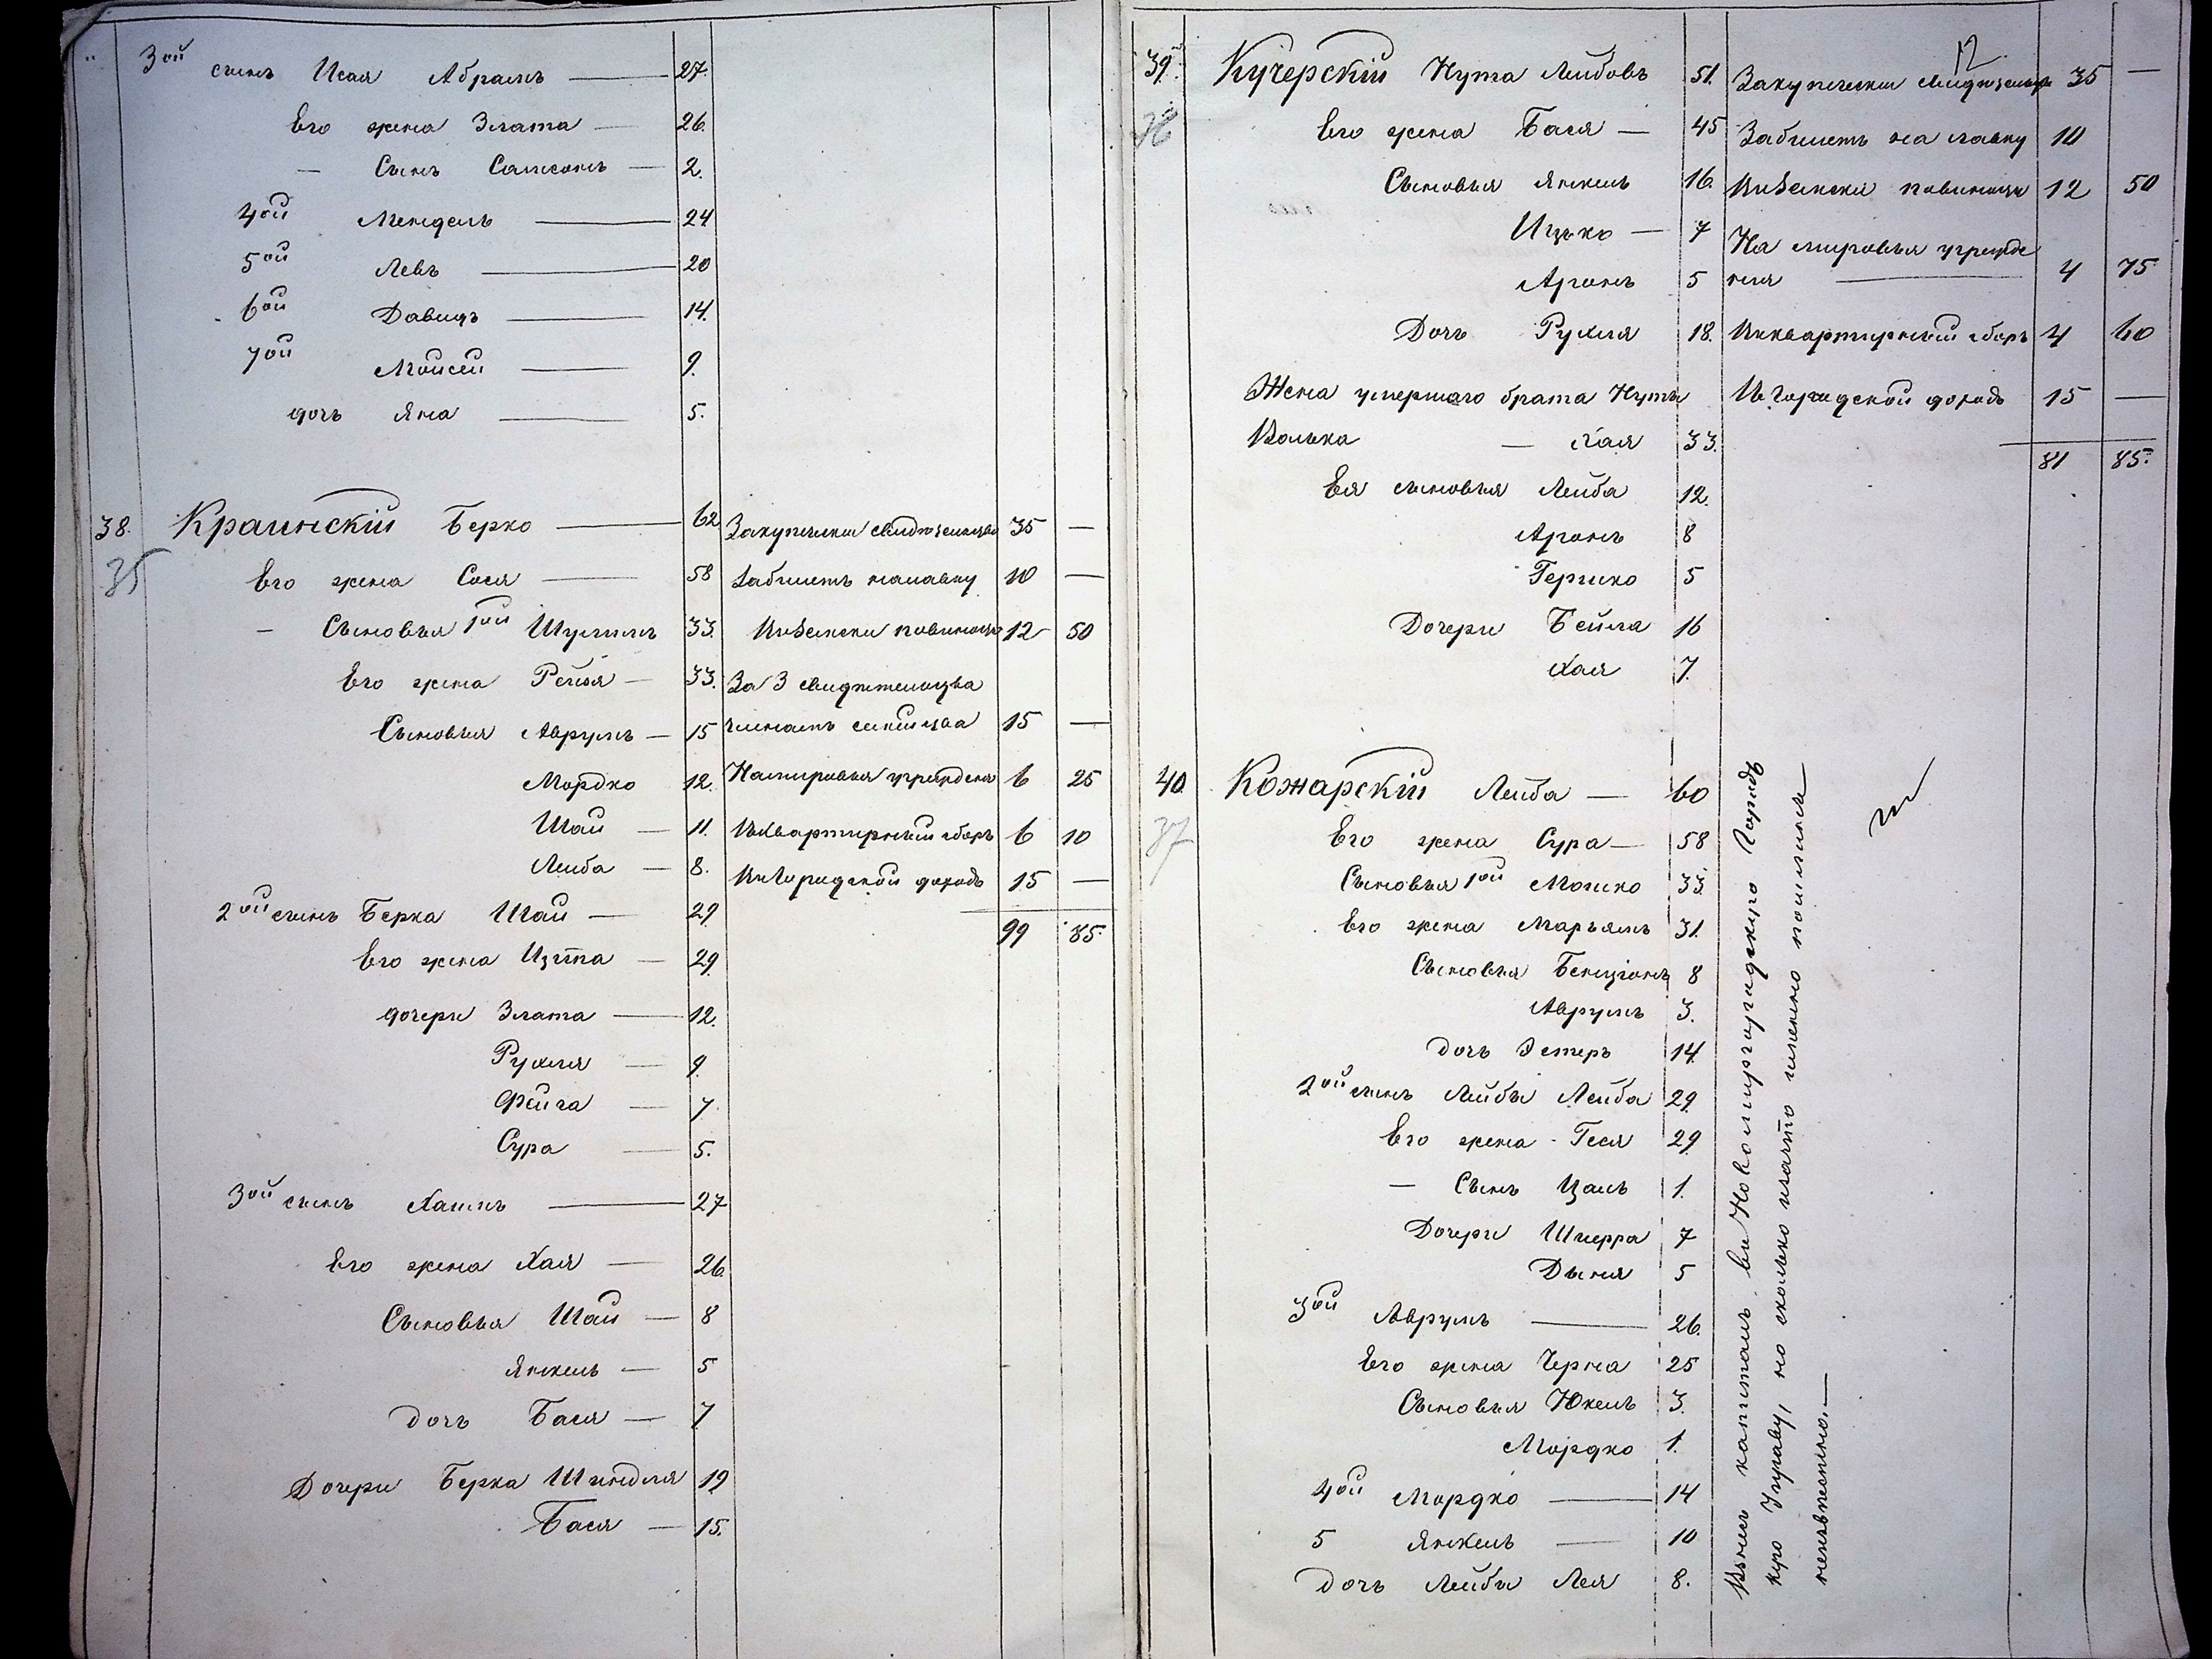 3ой сынъ Исая Абрамъ — 27.
Его жена Злата — 26.
— Сынъ Самсонъ — 2.
4ой Мендель — 24
5ой Левъ — 20
6ой Давидъ — 14.
7ой Мойсей — 9.
дочь Яна — 5.
38. Краинскій Берко — 62 Закупчески свидѣтельство 35 —
35
Его жена Сося — 58 Забилетъ налавку 10 —
— Сыновья 1ой Шулимъ 33. Изѣмски повиност 12 50
Его жена Рейзя — 33. За 3 свидѣтельства
Сыновья Аврумъ — 15 15 —
Мордко 12. Намировыя учрежден 6 25
Шай — 11. Иквартирный сборъ 6 10
Лейба — 8. Ивгородской доходъ 15 —
2ой сынъ Берка Шай — 29 99 85.
Его жена Изѣта — 29
дочери Злата — 12.
Рухля — 9.
Фейга — 7.
Сура — 5.
3ой сынъ Хаимъ — 27
Его жена Хая — 26.
Сыновья Шай — 8
Янкель — 5
Дочь Бася — 7.
Дочери Берка Шиндля 19
Бася — 15.
12
39. Кучерскій Нута Лейбовъ 51. Закупчески свидѣтельст 35 —
36
Его жена Бася — 45 Забилетъ на лавку 10
Сыновья Янкель 16. Изѣмски повиност 12 50
Ицько — 7 На мировыя учрежде
Аронъ 5 нія — 4 75
Дочь Рухля 18. Иквартирный сборъ 4 60
Жена умершаго брата Нуты Ивгородской доходъ 15 —
Волька — Хая 33. 81 85.
Ея сыновья Лейба 12.
Аронъ 8
Гершко 5
Дочери Бейла 16
Хая 7.
40. Кожарскій Лейба — 60
37
Его жена Сура — 58
Сыновья 1ой Мошко 33.
Его жена Марьямъ 31.
Сыновья Бенціонъ 8
Аврумъ 3.
дочь Эстеръ 14.
2ой сынъ Лейбы Лейба 29.
Его жена Геся 29
— Сынъ Цаль 1.
Дочери Шперра 7
Дыня 5
3ой Аврумъ — 26.
Его жена Черна 25
Сыновья Юкель 3.
Мордко 1.
4ой Мордко — 14
5 Янкель — 10
Дочь Лейбы Лея 8.
капиталъ въ Новомиргородскую Город
кую Управу, но сколько платто именно пошлины
неизвѣстно. —